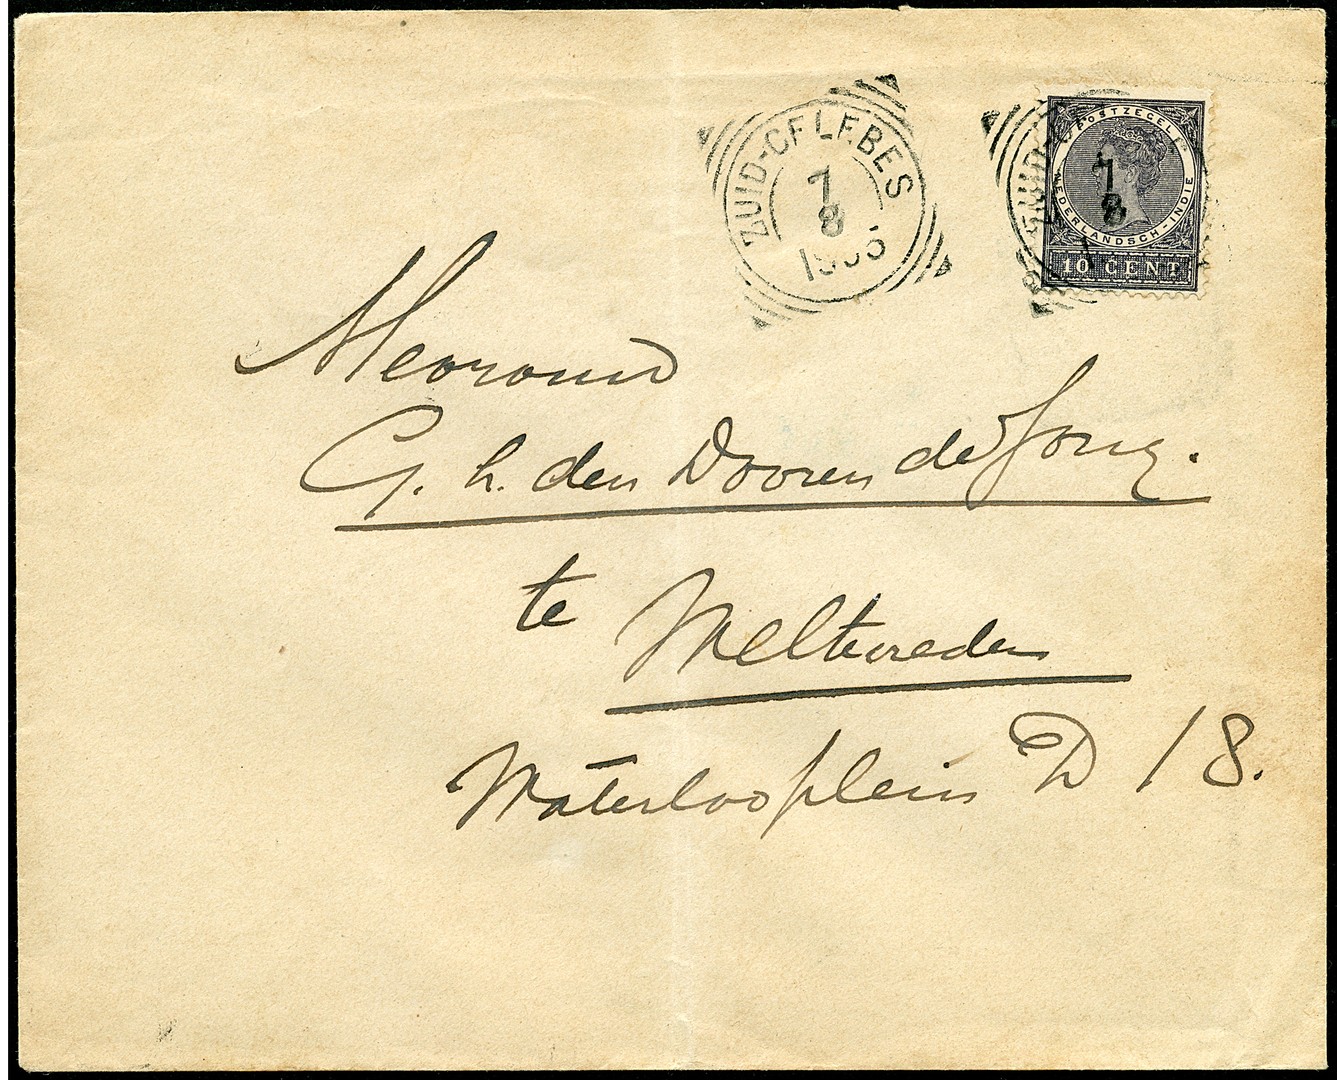 ZUID-CELEBES
7
8
1905
POSTZEGEL
NEDERLANDSCH-INDIË
10 CENT
ZUID
7
8
1
Mevrouw
G. L. den Dooren de Jong.
te
Weltevreden
Waterlooplein D 18.